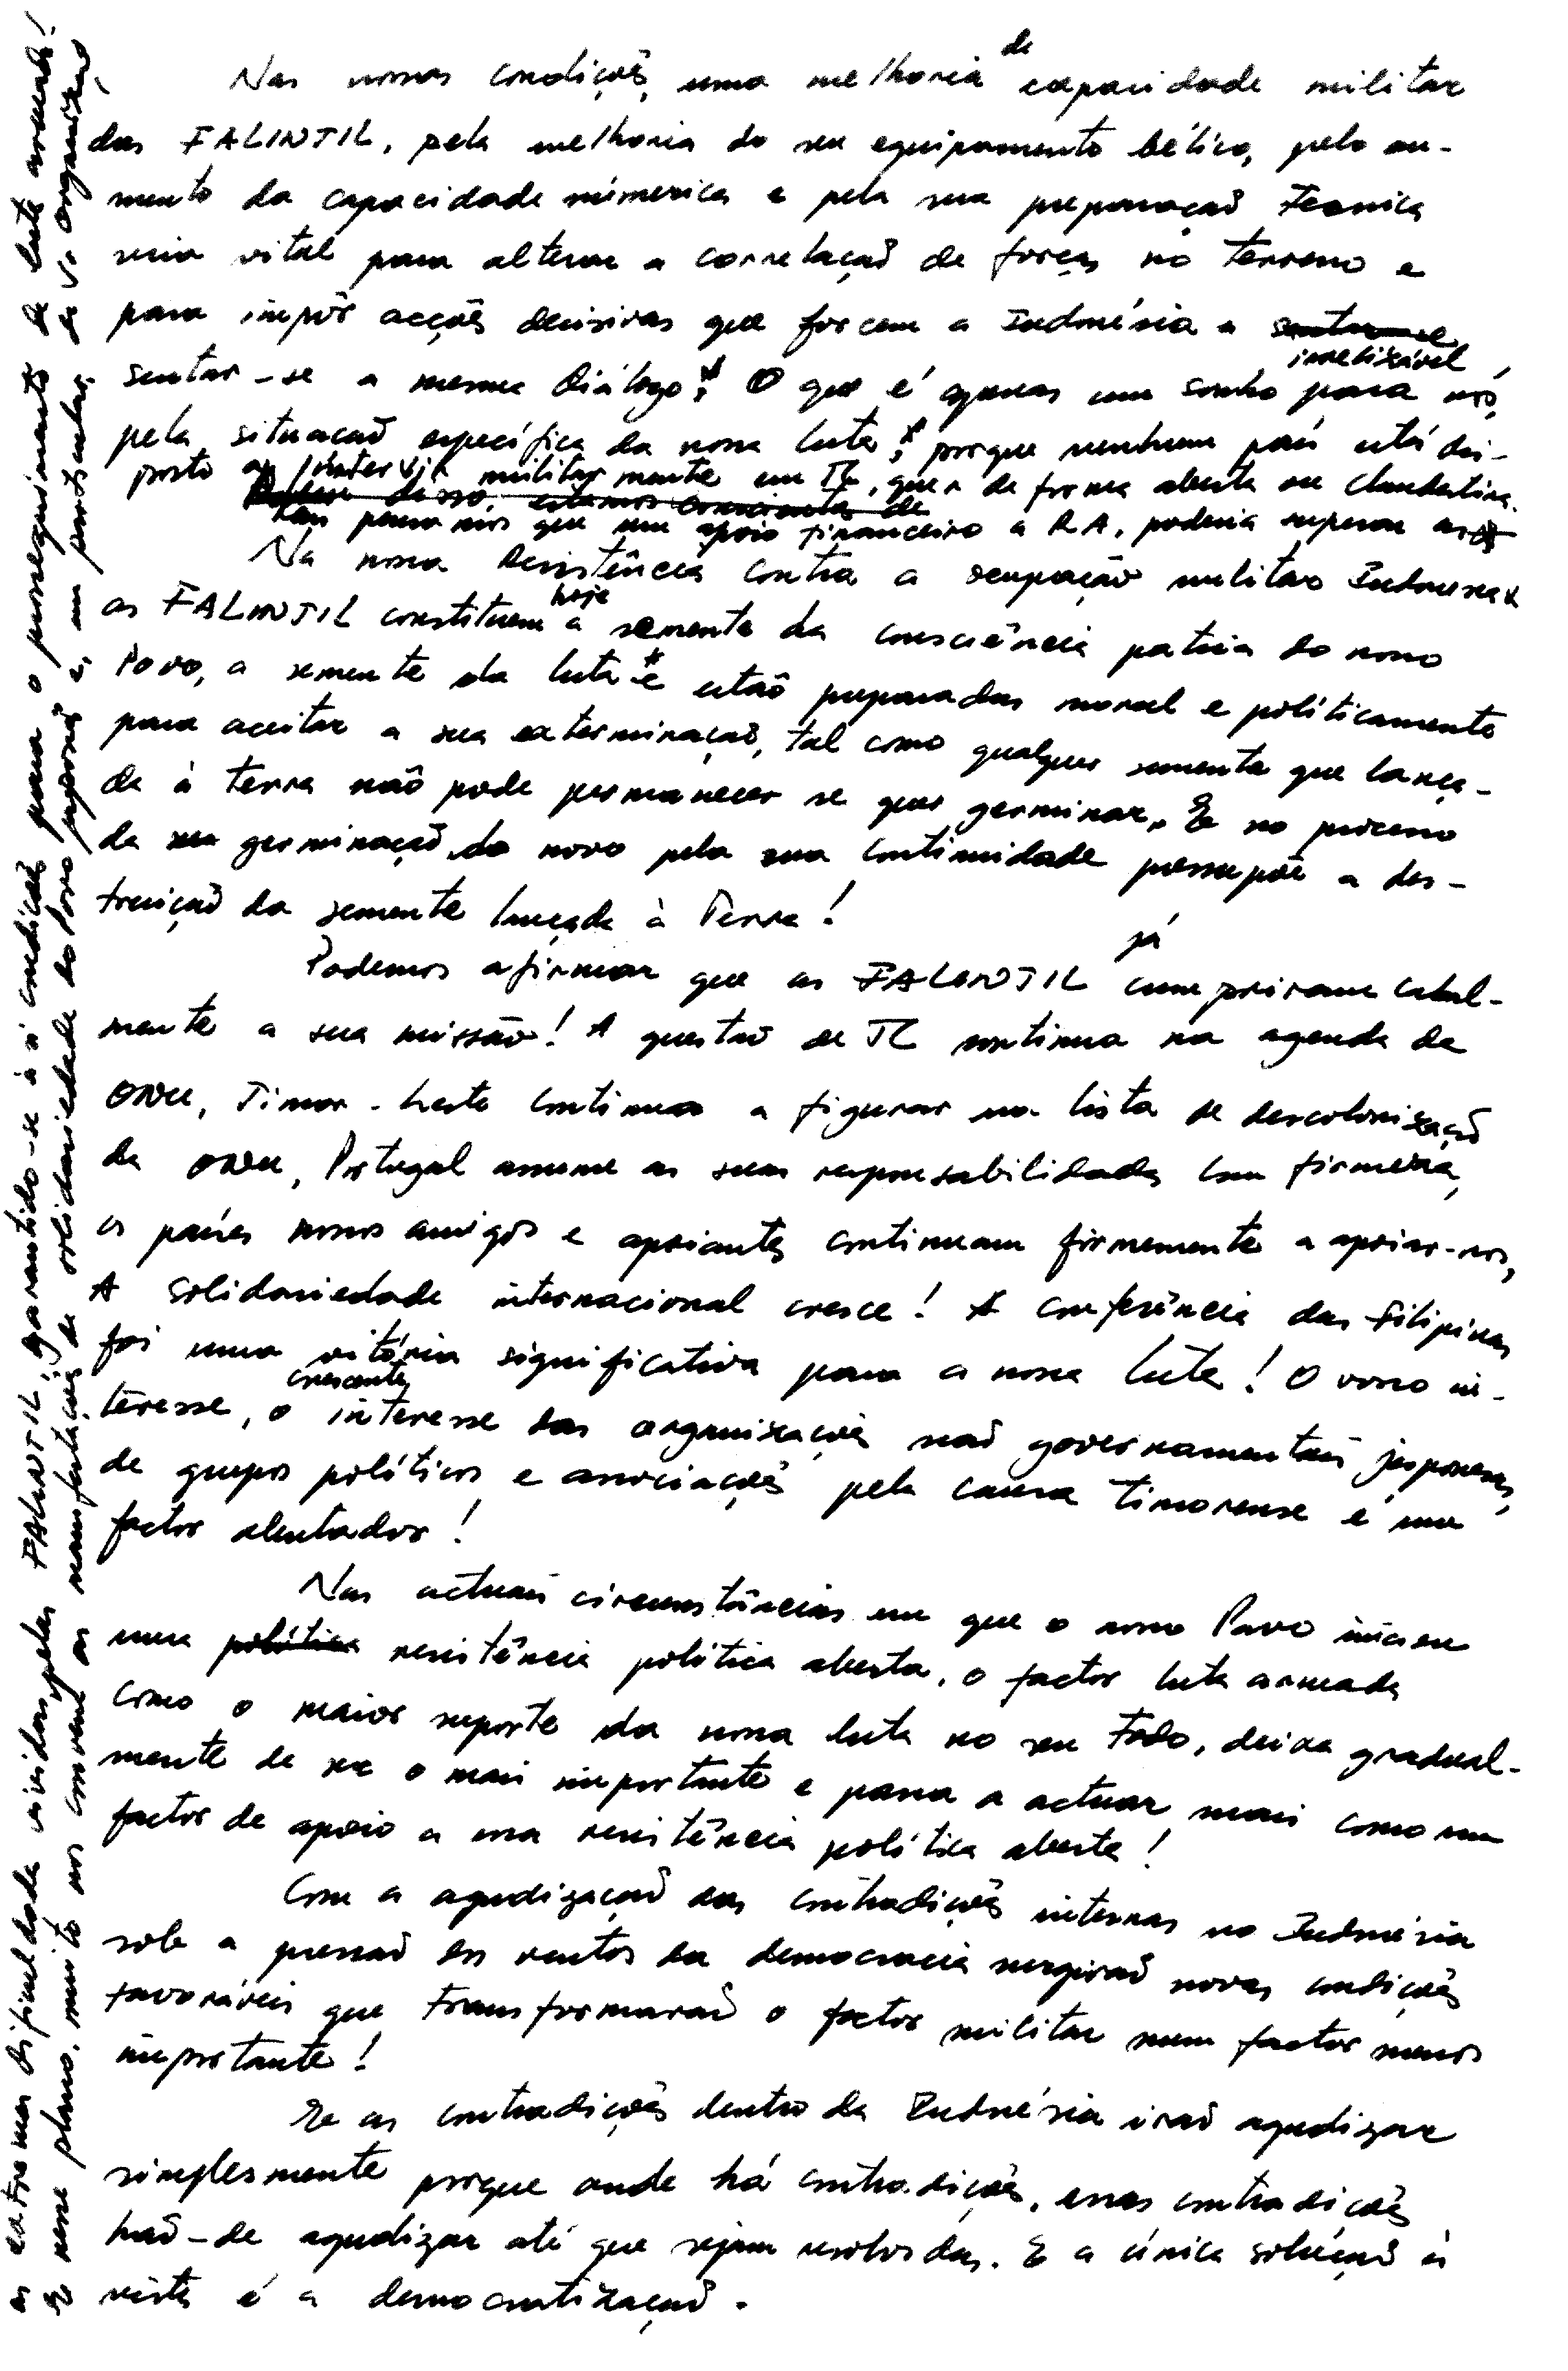 Nas nossas condições, uma melhoria de capacidade militar
das FALINTIL, pela melhoria do seu equipamento bélico, pelo au-
mento da capacidade númerica e pela sua preparação técnica
seria vital para alterar a correlação de forças no terreno e
para impôr acções decisivas que forcem a Indonésia a sentar-se
sentar-se a mesma diálogo! O que é apenas um sonho irrealizável para nós,
pela situação específica da nossa luta, porque nenhum país está dis-
posto a intervir militarmente em TL, quer de forma aberta ou clandestina.
Além disso, estamos conscientes de
Nem pensamos que um apoio financeiro a RA, poderia superar as
Na nossa Resistência contra a ocupação militar Indonésia
as FALINTIL constituem hoje a semente da consciência pátria do nosso
Povo, a semente da luta e estão preparadas moral e políticamente
para aceitar a sua exterminação, tal como qualquer semente que lança-
da à terra não pode permanecer se quer germinar. E no processo
da sua germinação do novo pela sua continuidade pressupõe a des-
truição da semente lançada à Terra!
Podemos afirmar que as FALINTIL já cumpriram cabal-
mente a sua missão! A questão de TL continua na agenda da
ONU, Timor-Leste continua a figurar na lista de descolonização
da ONU, Portugal assume as suas responsabilidades com firmeza,
os países nossos amigos e apoiantes continuam firmemente a apoiar-nos,
A solidariedade internacional cresce! A Conferência das Filipinas
foi uma vitória significativa para a nossa luta! O vosso in-
teresse, o crescente interesse das organizações não governamentais japonesas,
de grupos políticos e associações pela causa timorense é um
factor alentador!
Nas actuais circunstâncias em que o nosso Povo iniciou
uma política resistência política aberta, o factor luta armada
como o maior suporte da nossa luta no seu todo, deixa gradual-
mente de ser o mais importante e passa a actuar mais como um
factor de apoio a essa resistência política aberta!
Com a agudização das contradições internas na Indonésia
sob a pressão dos ventos da democracia surgirão novas condições
favoráveis que transformarão o factor militar num factor menos
importante!
E as contradições dentro da Indonésia irão agudizar
simplesmente porque onde há contradições, essas contradições
hão-de agudizar até que sejam resolvidas. E a única solução à
vista é a democratização.
as extremas dificuldades vividas pelas FALINTIL, garantido-se à si condições para o prosseguimento da luta armada!
E nesse plano, muito nos comovem as manifestações de solidariedade do Povo japonês e, em particular, da v. organização